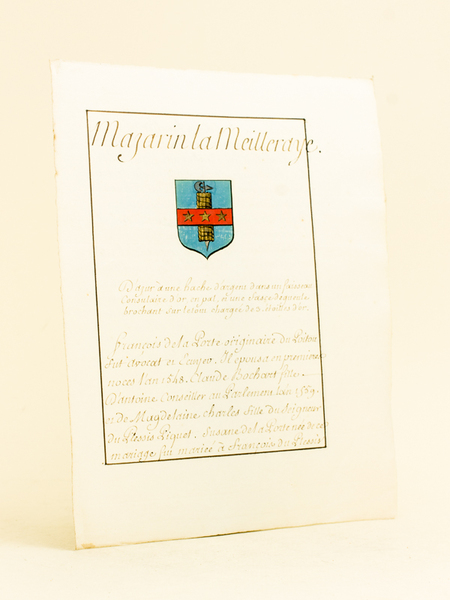 Mazarin la Meilleraye.
D'azur a une hache d'argen dans un faisceau
Consulaire d'or en pal, a une fasce de gueule
brochant sur le tout chargée de 3. étoiles d'or.
françois de la Porte originaire du Poitou
fut avocat en Il épousa en premieres
noces l'an 1548. Claude Bochart fille
d'Antoine Conseiller au Parlement l'an 1559.
et de Magdelaine charles fille du seigneur
du Plessis Piquet. Susane de la Porte née de ce
mariage fut mariée a françois du Plessis